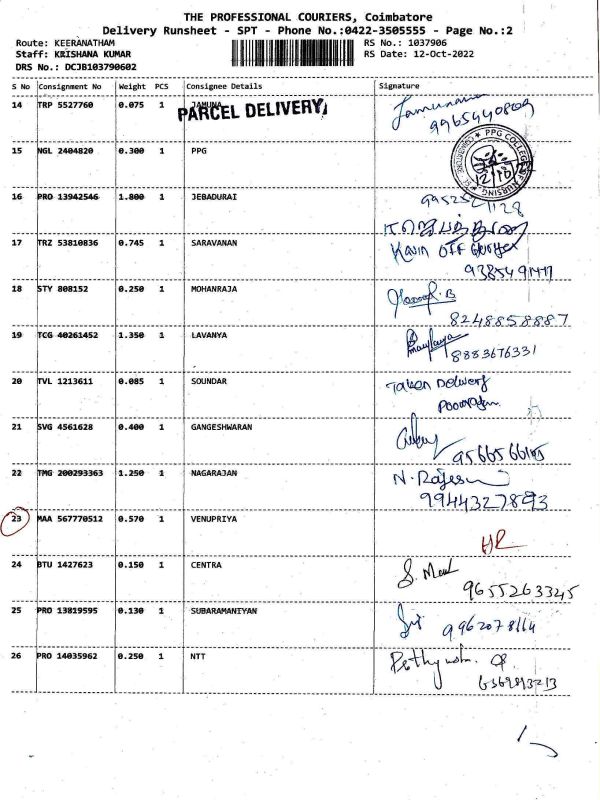 THE PROFESSIONAL COURIERS, Coimbatore
Delivery Runsheet - SPT - Phone No.:0422-3505555 - Page No.:2
Route: KEERANATHAM RS No.: 1037906
Staff: KRISHANA KUMAR RS Date: 12-Oct-2022
DRS No.: DCJB103790602
S No Consignment No Weight PCS Consignee Details Signature
14 TRP 5527760 0.075 1 JAMUNA
PARCEL DELIVERY
15 NGL 2404820 0.300 1 PPG
PPG COLLEGE OF NURSING
16 PRO 13942546 1.800 1 JEBADURAI
17 TRZ 53810836 0.745 1 SARAVANAN
18 STY 808152 0.250 1 MOHANRAJA
8248858887
19 TCG 40261452 1.350 1 LAVANYA
8883676331
20 TVL 1213611 0.085 1 SOUNDAR Taken Delivery
21 SVG 4561628 0.400 1 GANGESHWARAN
22 TMG 200293363 1.250 1 NAGARAJAN
9944327893
23 MAA 567770512 0.570 1 VENUPRIYA
24 BTU 1427623 0.150 1 CENTRA
9655263345
25 PRO 13819595 0.130 1 SUBARAMANIYAN
9962078114
26 PRO 14035962 0.250 1 NTT